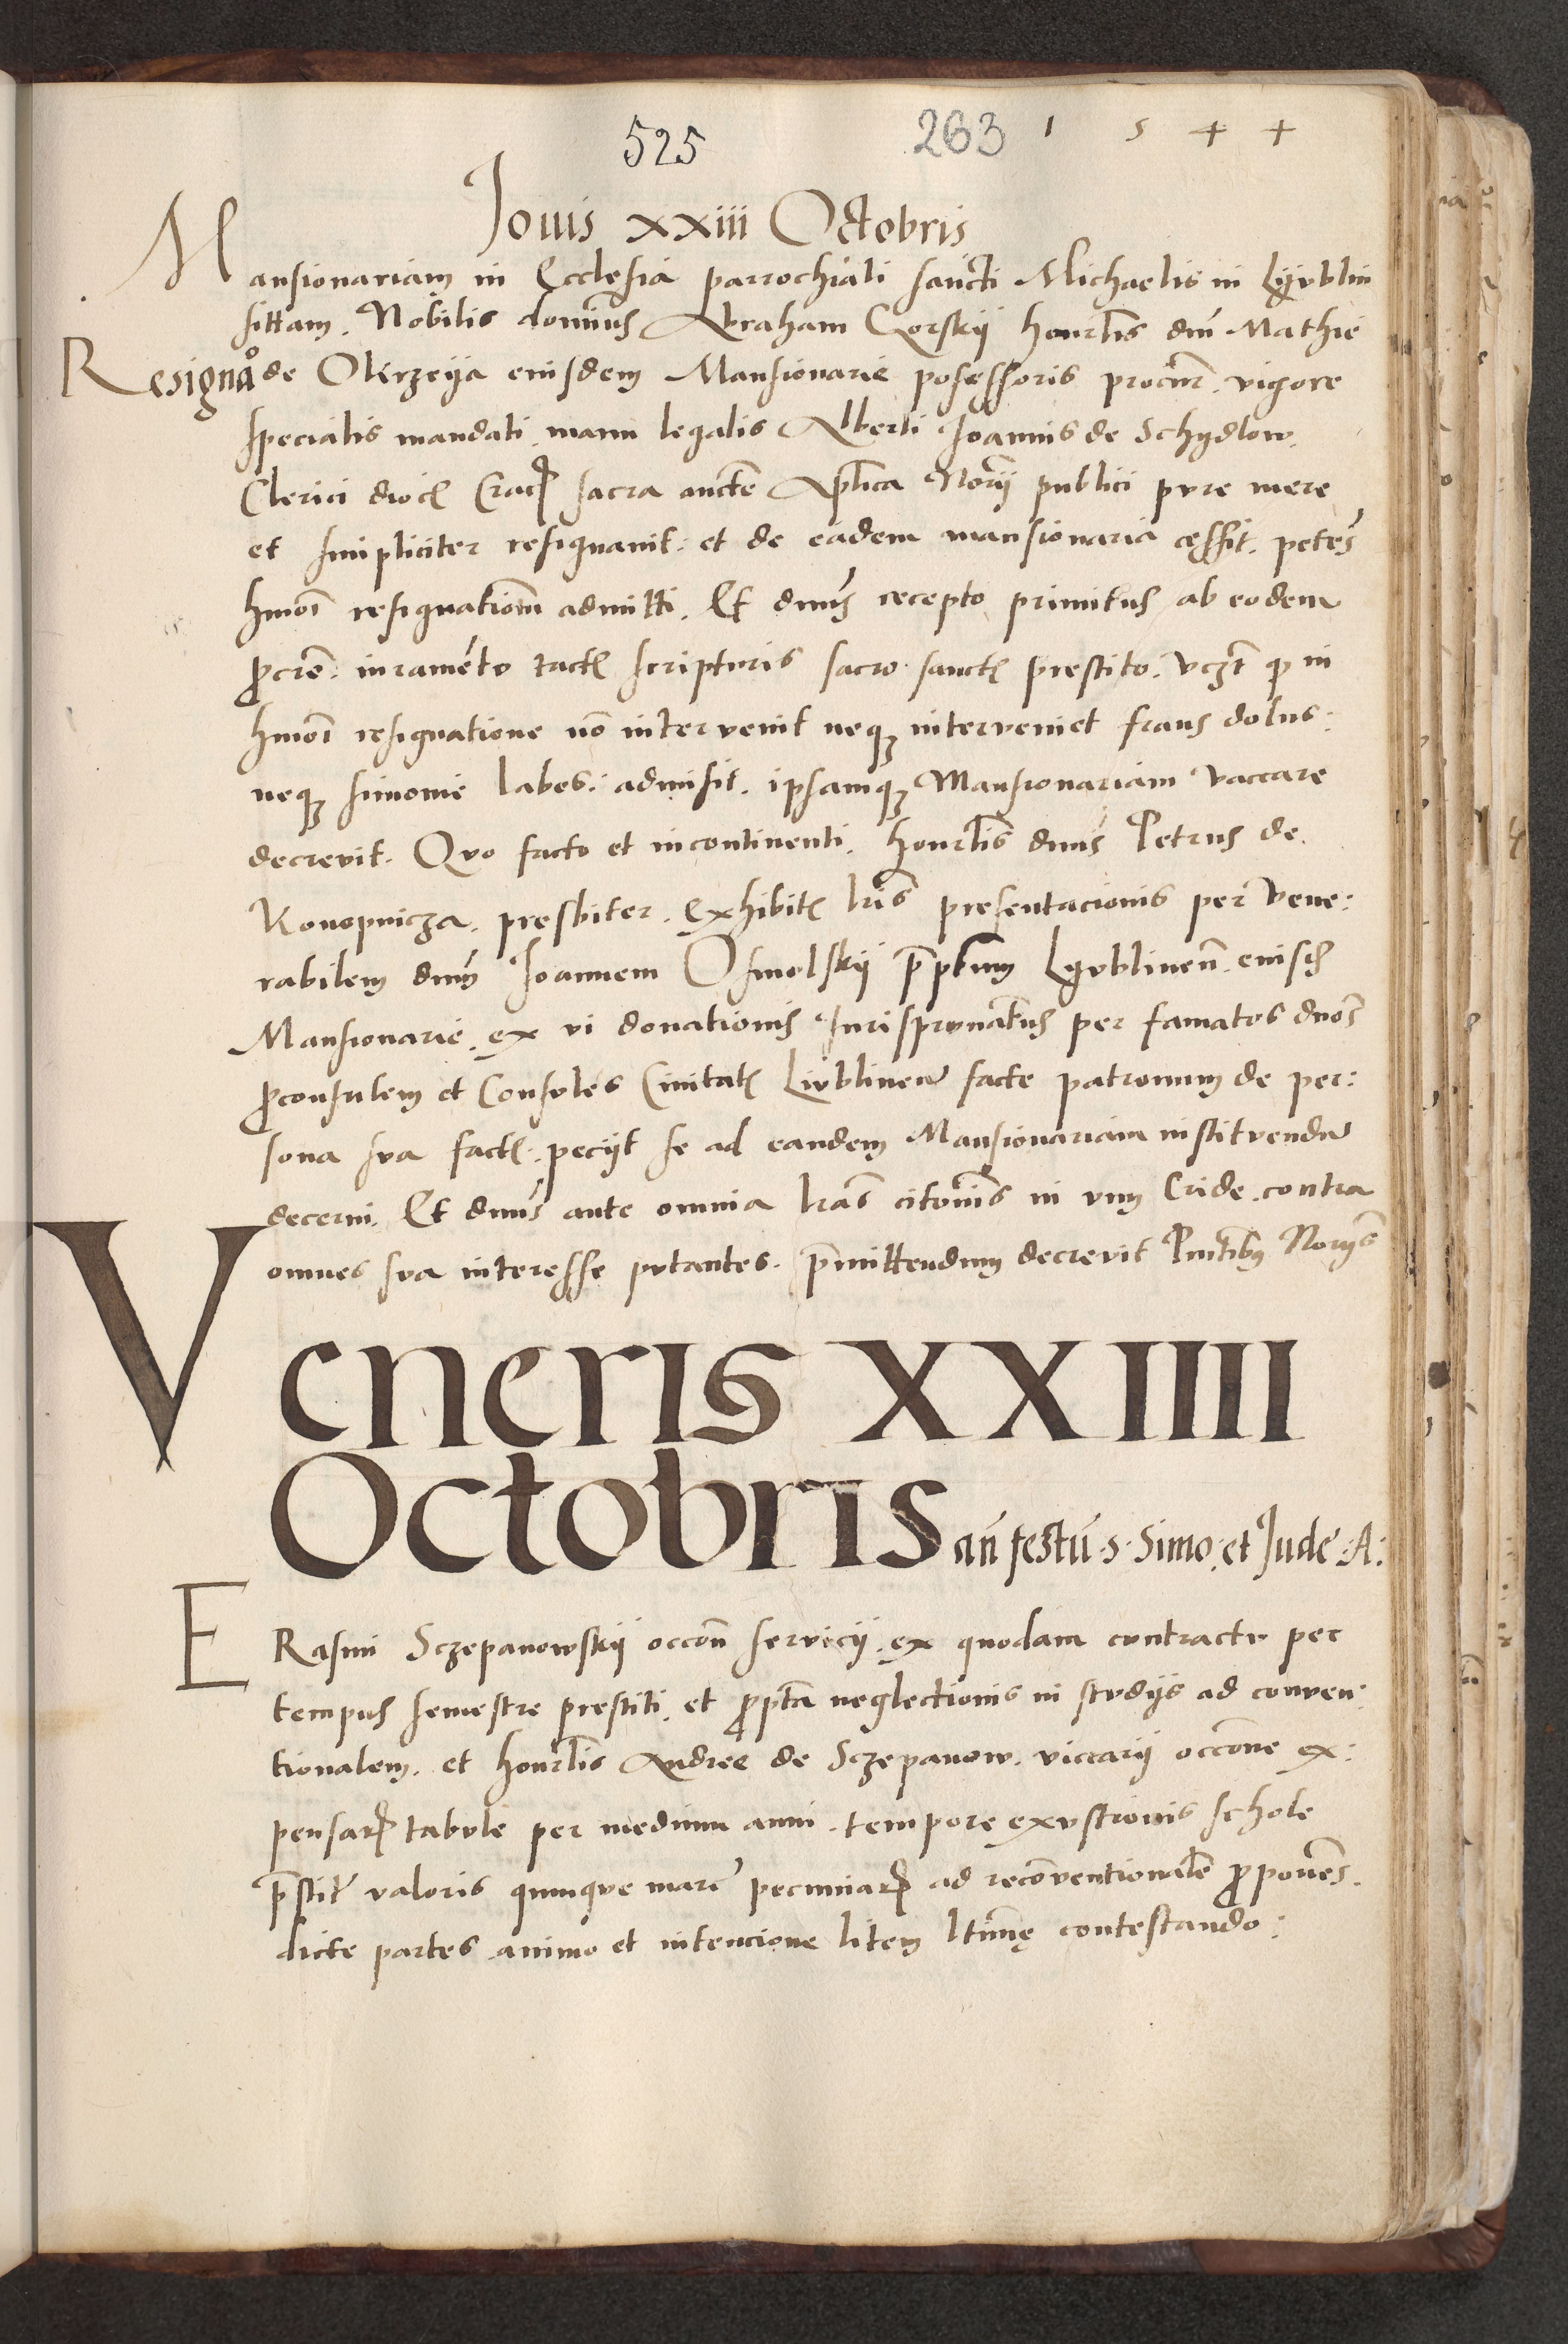 525 263 1 5 4 4
Jouis xxiii Octobris
Mansionariam in Ecclesia parrochiali sancti Michaelis in Lyublin
sittam. Nobilis dominus Abraham Gorskij honrlis dni Mathie
Resigno de Okrzeÿa eiusdem Mansionarie possessoris procur. vigore
specialis mandati manu legalis Alberti Joannis de Schydlow
Clerici dioc Crac sacra aucte Aplica Norij publici pure mere
et simpliciter resignauit: et de eadem mansionaria cessit. petes
hmoi resignationm admitti. Et dnus recepto primitus ab eodem
pcre: iuramento tact scripturis sacro sanct prestito. vczt q in
hmoi resignatione no intervenit neqz interveniet fraus dolus:
neqz simonie labes: admisit. ipsamqz Mansionariam vaccare
decrevit. Quo facto et incontinenti. honrlis dnus Petrus de
Konopnicza. presbiter. exhibit lris presentacionis per vene:
rabilem dnm Joannem Osmolskij pptum Lyublinen. eiusd
Mansionarie. ex vi donationis Jurispronatus per famatos dnos
pconsulem et Consules Ciuitat Liublinen facte patronum de per:
sona sua fact. peciit se ad eandem Mansionariam instituendu
decerni. Et dnus ante omnia lras citonis in vim Cride contra
omnes sua interesse putantes. pmittendum decrevit Pntibus Norijs
Veneris XXIIII
Octobris an festu s. Simo. et Jude A:
ERasmi Sczepanowskij occon servicij. ex quodam contractu per
tempus semestre prestiti. et ppta neglectionis in studijs ad conven:
tionalem. et honrlis Andree de Sczepanow. viccarij occone ex:
pensar tabule per medium anni tempore exustionis schole
pstit valoris quinque marc pecuniar ad reconventionale pponens.
dicte partes animo et intencione litem ltime contestando: